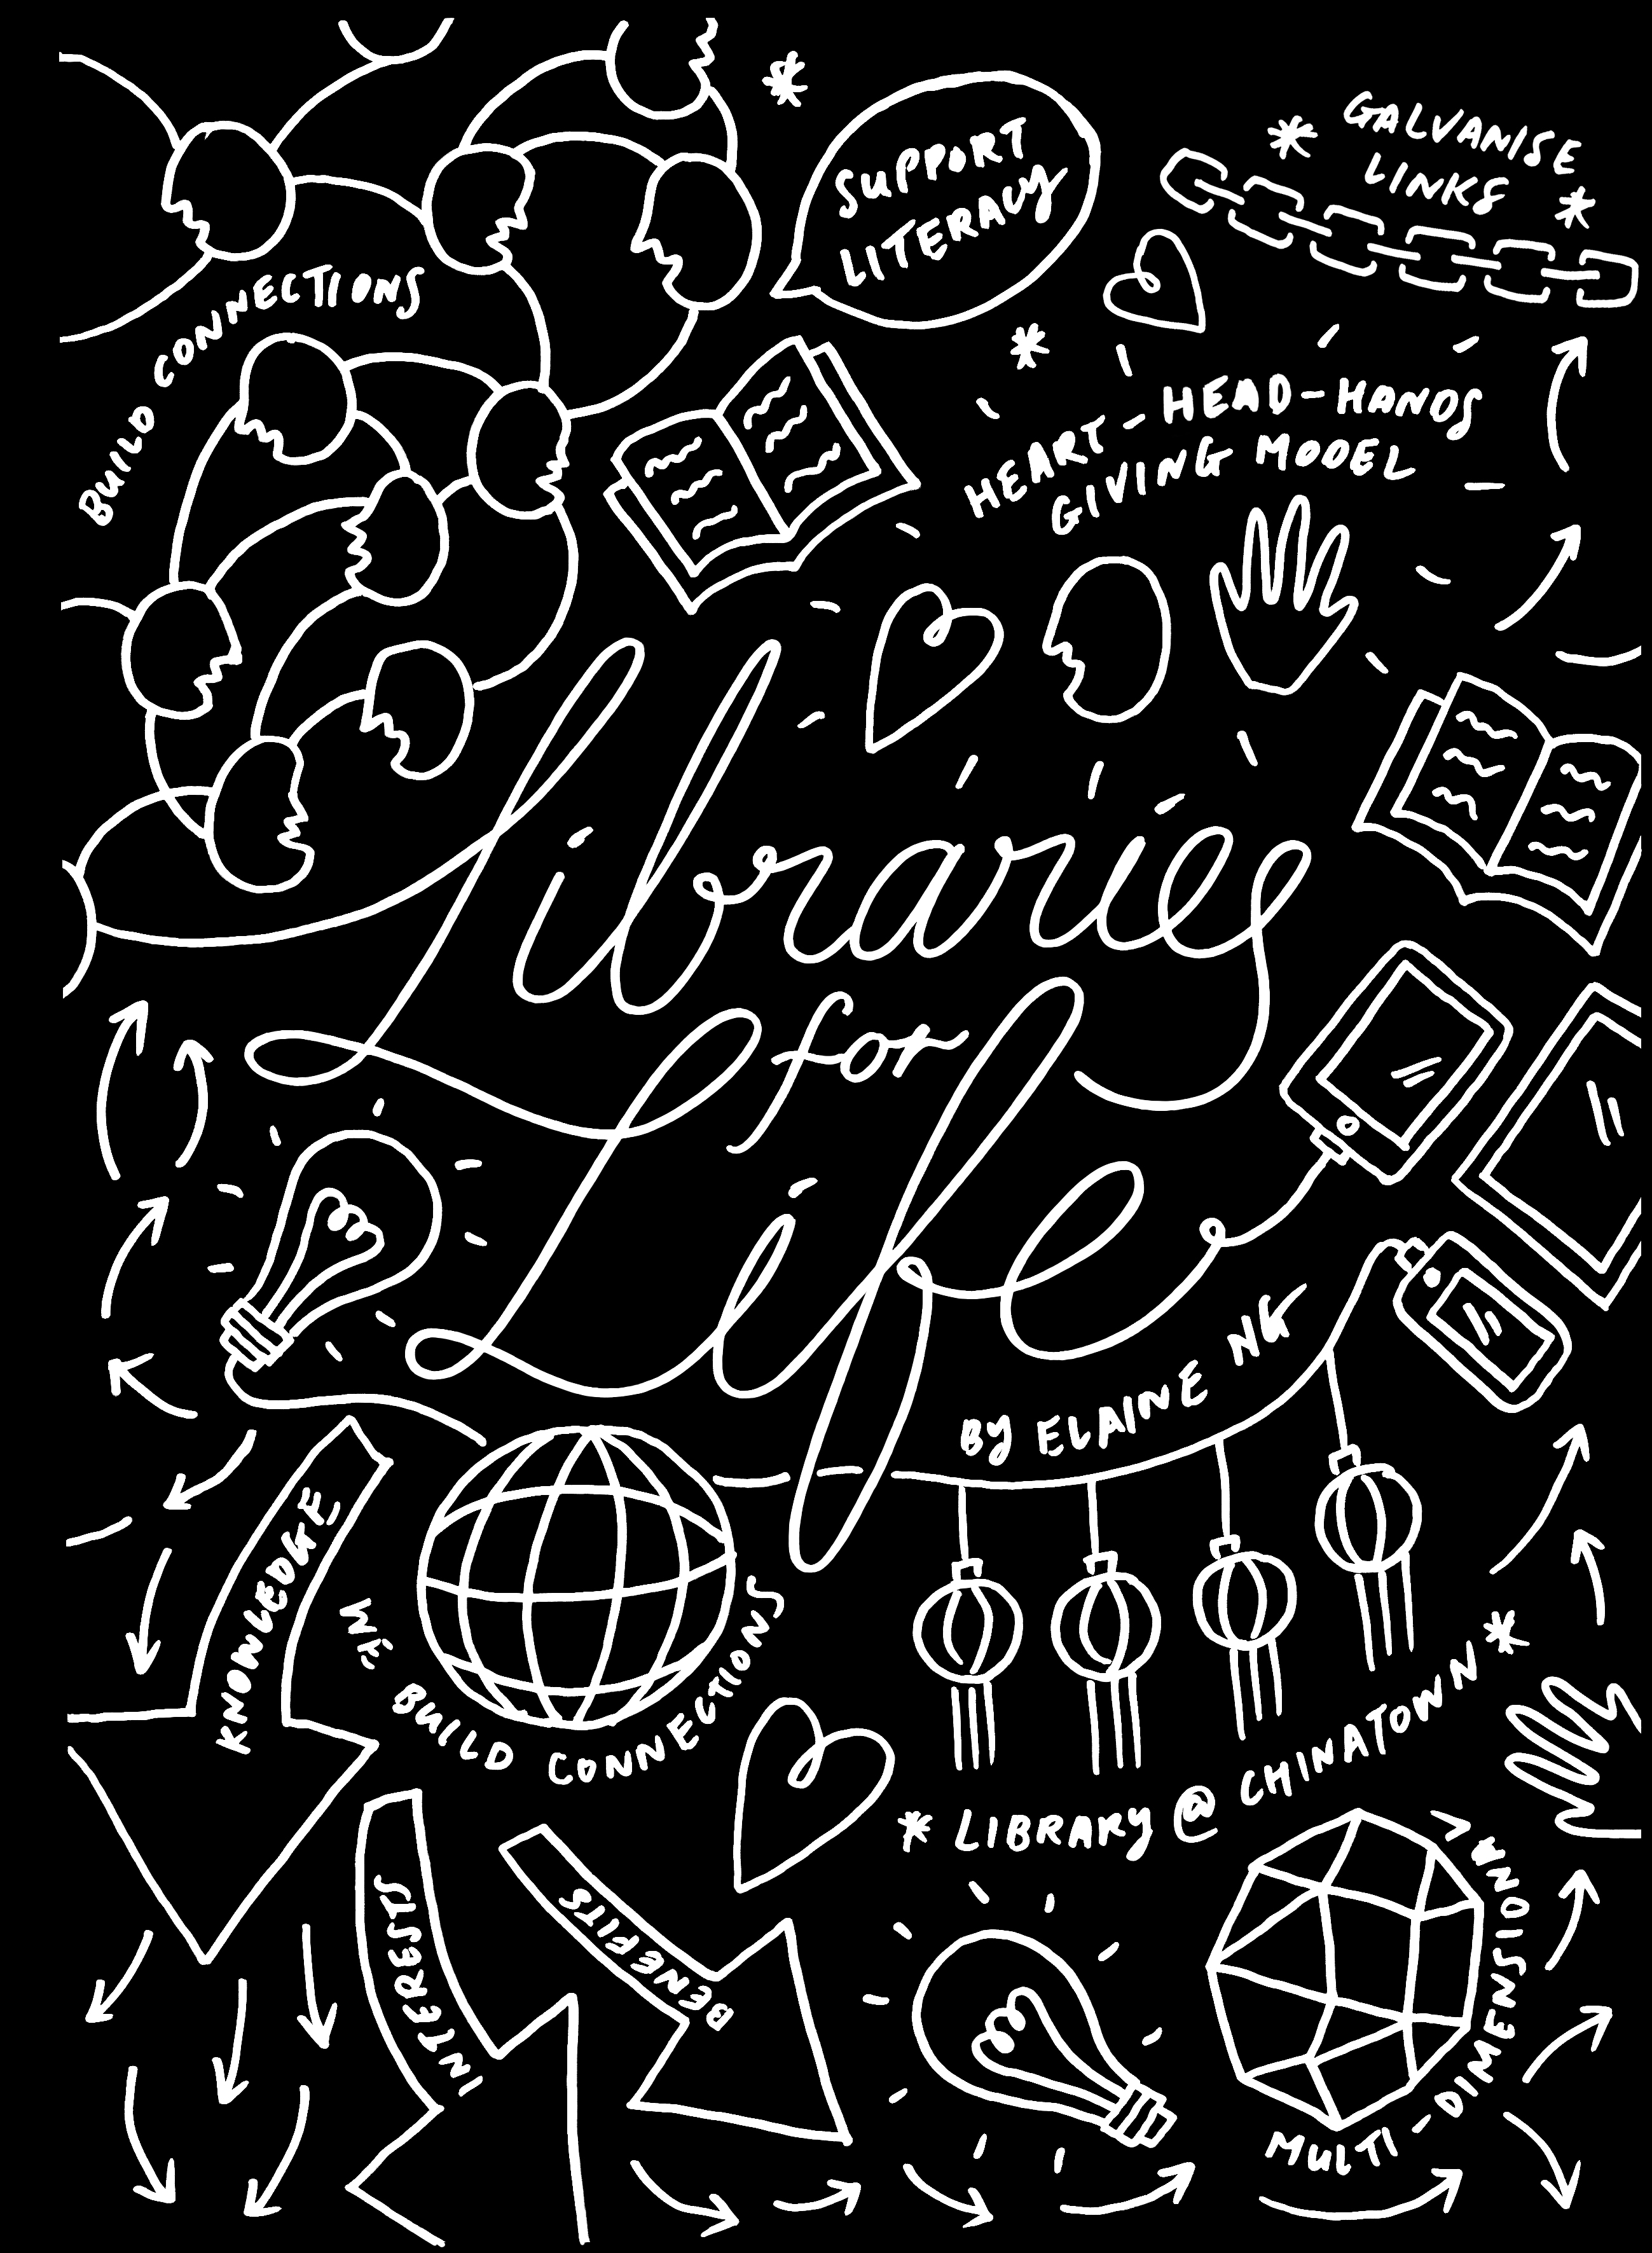 SUPPORT
LITERACY
GALVANISE
LINKS
BUILD CONNECTIONS
HEART-HEAD-HANDS
GIVING MODEL
Libraries
for
Life
BY ELAINE NK
KNOWLEDGE,
WE BUILD CONNECTIONS
* LIBRARY @ CHINATOWN *
INTERESTS
BENEFITS
MULTI-DIMENSIONAL